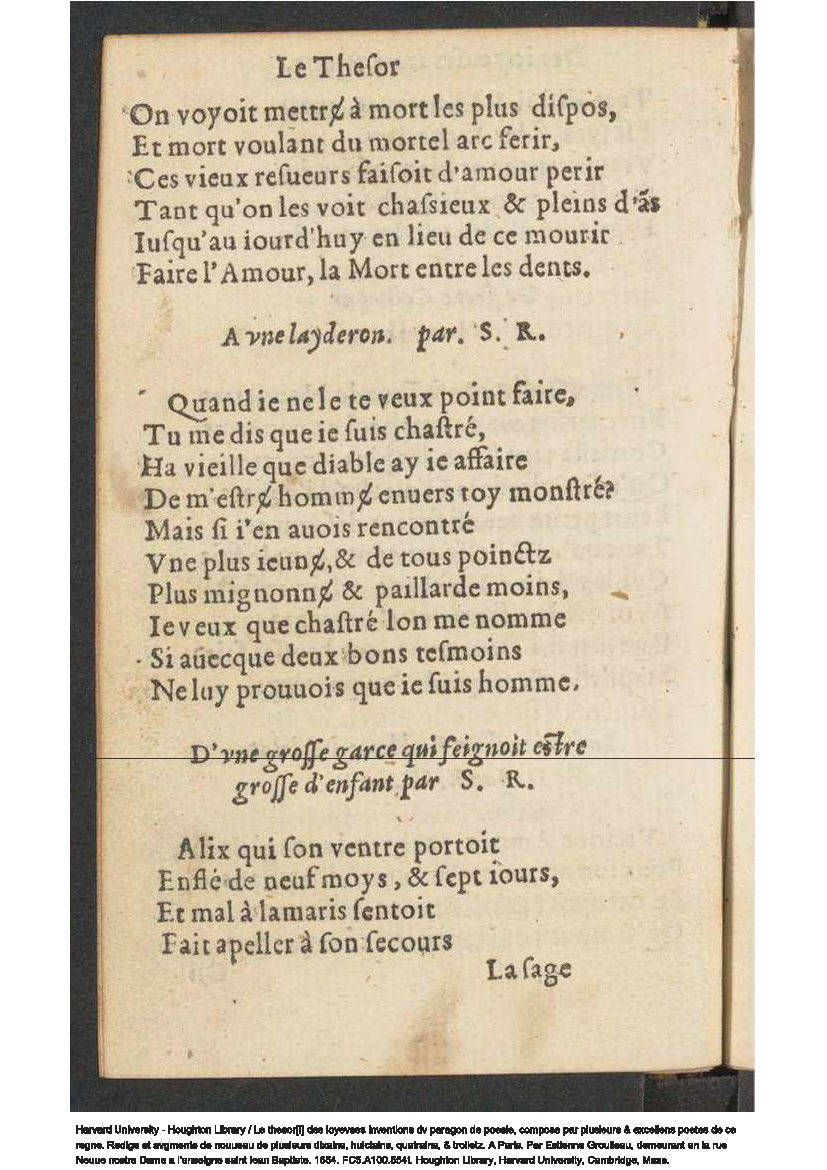 Le Theſor
On voyoit mettrɇ à mort les plus diſpos,
Et mort voulant du mortel arc ferir,
Ces vieux reſueurs faiſoit d'amour perir
Tant qu'on les voit chaſsieux & pleins d'ãs
Iuſqu'au iourd'huy en lieu de ce mourir
Faire l'Amour, la Mort entre les dents.
A vne layderon. par. S. R.
Quand ie ne le te veux point faire,
Tu me dis que ie ſuis chaſtré,
Ha vieille que diable ay ie affaire
De m'eſtrɇ hommɇ enuers toy monſtré?
Mais ſi i'en auois rencontré
Vne plus ieunɇ, & de tous poinctz
Plus mignonnɇ & paillarde moins,
Ie veux que chaſtré lon me nomme
Si auecque deux bons teſmoins
Ne luy prouuois que ie ſuis homme.
D'vne groſſe garce qui feignoit eſtre
groſſe d'enfant par S. R.
Alix qui ſon ventre portoit
Enflé de neuf moys, & ſept iours,
Et mal à lamaris ſentoit
Fait apeller à ſon ſecours
La ſage
Harvard University - Houghton Library / Le thesor[!] des ioyevses inventions dv paragon de poesie, compose par plusieurs & excellens poetes de ce
regne. Redige et avgmente de nouueau de plusieurs dixains, huictains, quatrains, & trolletz. A Paris. Par Estienne Groulleau, demeurant en la rue
Neuue nostre Dame a l'enseigne saint Iean Baptiste. 1554. FC5.A100.554t. Houghton Library, Harvard University, Cambridge, Mass.